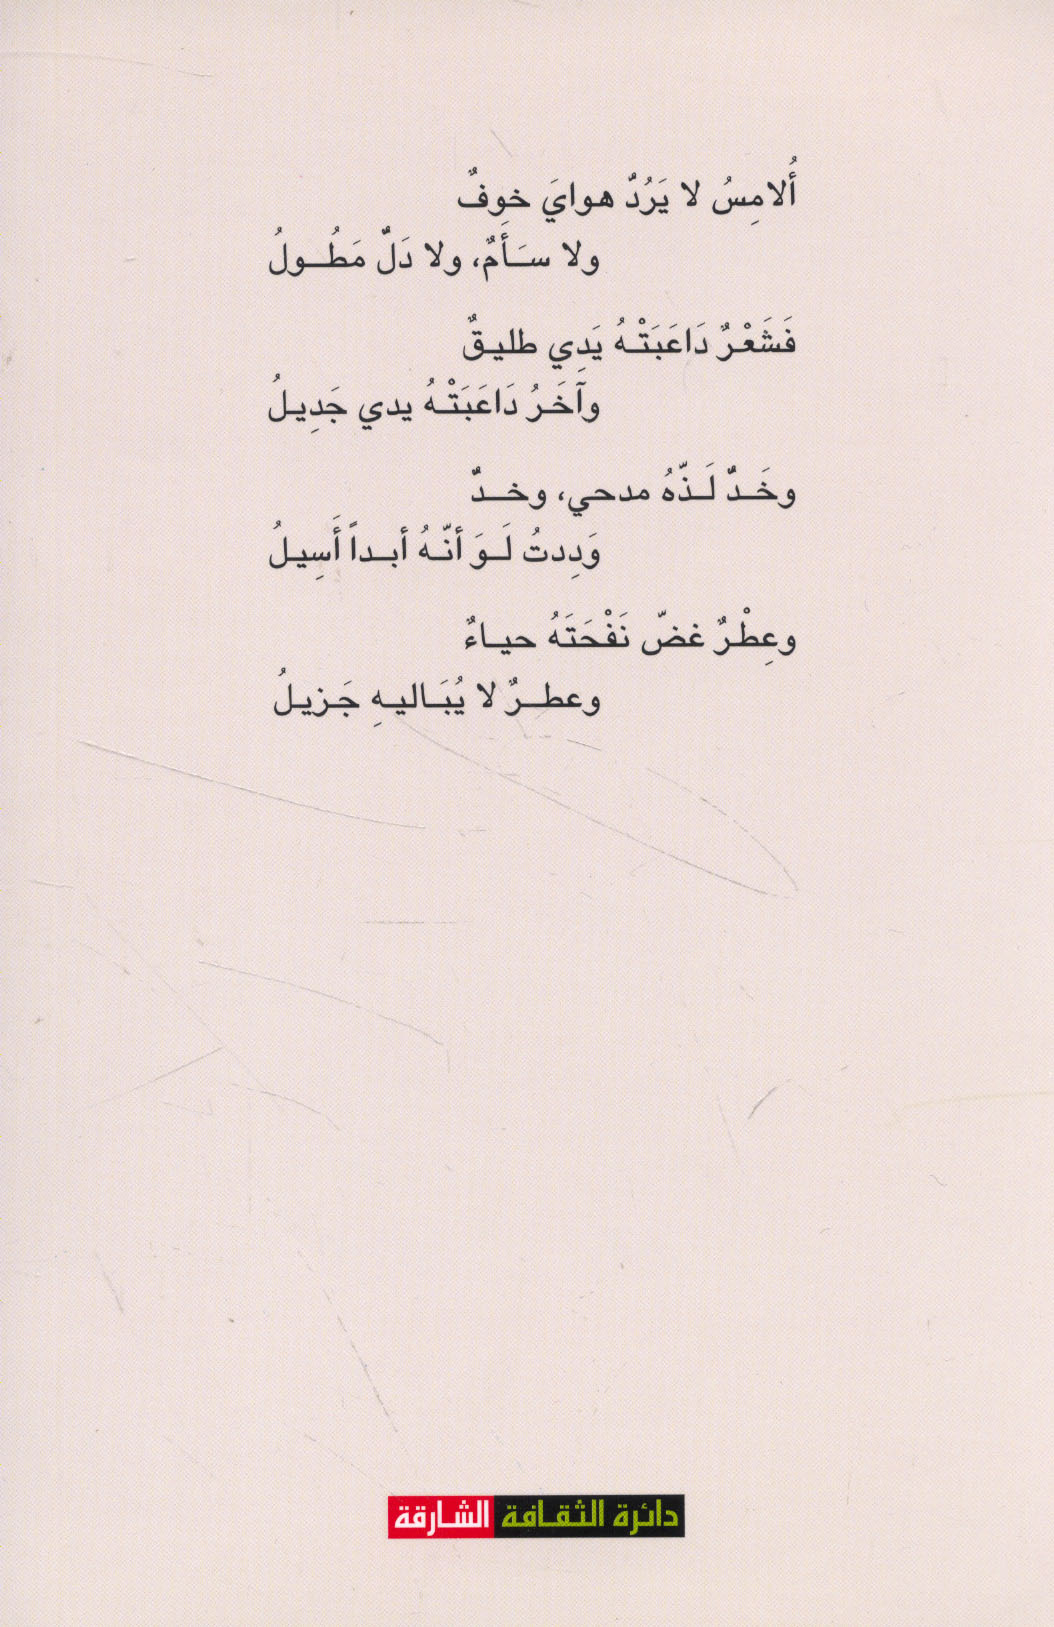 أُلامِسُ لا يَرُدّ هوايَ خوِفٌ
ولا سَأمٌ، ولا دَلٌّ مَطُولُ
فَشَعْرٌ دَاعَبَتْهُ يَدِي طليقٌ
وآخَرُ دَاعَبَتْهُ يدي جَدِيلُ
وخَدٌّ لَذّهُ مدحي، وخدٌّ
وَدِدتُ لَوَ أنّهُ أبداً أَسِيلُ
وعِطْرٌ غضّ نَفْحَتَهُ حياءٌ
وعطرٌ لا يُبَاليهِ جَزيلُ
دائرة الثقافة الشارقة